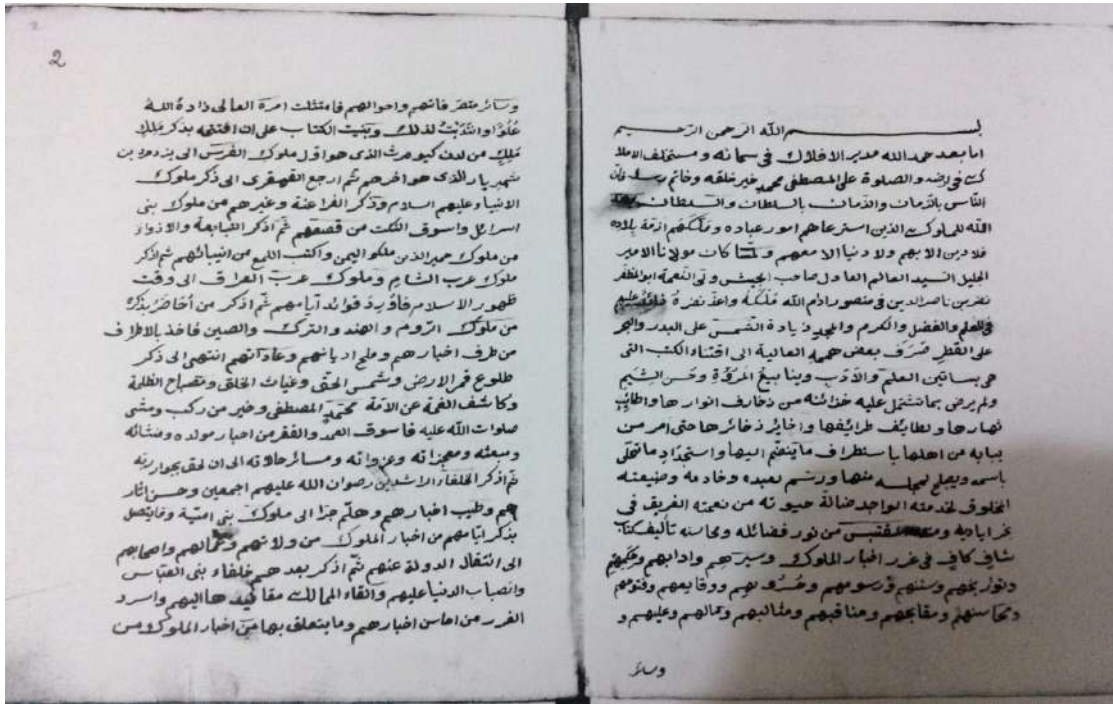 بسم الله الرحمن الرحيم
اما بعد حمد الله مدبر الافلاك فى سمائه ومستخلف الاملا
ك فى ارضه والصلوة على المصطفى محمد خير خلقه وخاتم رسله فان
الناس بالزمان والزمان بالسلطان والسلطان
الله للملوك الذين استرعاهم امور عباده وملكهم ازمة بلاده
فلا دين الا بهم ولا دنيا الا معهم ولما كان مولانا الامير
الجليل السيد العالم العادل صاحب الجيش ولى النعمة ابو المظفر
نصر بن ناصر الدين ابى منصور ادام الله ملكه واعز نصره
فى العلم والفضل والكرم والمجد زيادة الشمس على البدر والبحر
على القطر صرف بعض هممه العالية الى اقتناء الكتب التى
هى بساتين العلم والادب وينابيع المروة وحسن الشيم
ولم يرض بما تشتمل عليه خزائنه من زخارف انوارها واطائب
ثمارها ولطائف طرائفها واخاير ذخائرها حتى امر من
ببابه من اهلها باستطراف ما ينضم اليها واستجداد ما تحلى
باسمه ويصلح لمجلسه منها ورسم لعبده وخادمه وصنيعته
المخلوق لخدمته الواجد ضالة حيوته من نعمته الغريق فى
بحر اياديه المقتبس من نور فضائله ومحاسنه تأليف كتاب
شاف كاف فى غرر اخبار الملوك وسيرهم وادابهم وحكمهم
وتواريخهم وسننهم ورسومهم وحروبهم ووقايعهم وفتوحهم
ومحاسنهم ومقابحهم ومناقبهم ومثالبهم وما لهم وعليهم و
وسائر
2
وسائر متصرفاتهم واحوالهم فامتثلت امره العالى زاده الله
علوا وانتدبت لذلك وبنيت الكتاب على ان افتتحه بذكر ملك
ملك من لدن كيومرث الذى هو اول ملوك الفرس الى يزدجرد بن
شهريار الذى هو اخرهم ثم ارجع القهقرى الى ذكر ملوك
الانبياء عليهم السلام وذكر الفراعنة وغيرهم من ملوك بنى
اسرائل واسوق النكت من قصصهم ثم اذكر التبابعة والاذواء
من ملوك حمير الذين ملكوا اليمن واكتب اللمع من انبيائهم ثم اذكر
ملوك عرب الشام وملوك عرب العراق الى وقت
ظهور الاسلام فاورد فوائد ايامهم ثم اذكر من أخاض بذكره
من ملوك الروم والهند والترك والصين فاخذ بالاطراف
من طرف اخبارهم وملح اديانهم وعاداتهم انتهى الى ذكر
طلوع قمر الارض وشمس الحق وغياث الخلق ومصباح الظلمة
وكاشف الغمة عن الامة محمد المصطفى وخير من ركب ومشى
صلوات الله عليه فاسوق العمد والفقر من اخبار مولده ومنشائه
ومبعثه ومعجزاته وغزواته وسائر حالاته الى ان لحق بجوار ربه
ثم اذكر الخلفاء الراشدين رضوان الله عليهم اجمعين وحسن اثار
هم وطيب اخبارهم وهلم جرا الى ملوك بنى امية وما يتصل
بذكر ايامهم من اخبار الملوك من ولاتهم وعمالهم واصحابهم
الى انتقال الدولة عنهم ثم اذكر بعدهم خلفاء بنى العباس
وانصباب الدنيا عليهم والقاء الممالك مقاليدها اليهم واسرد
الغرر من احاسن اخبارهم وما يتعلق بها من اخبار الملوك من